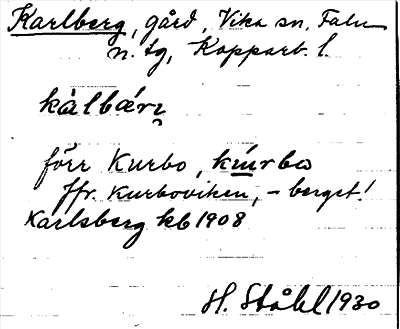 Karlberg, gård, Vika sn, Falu
n. tg, Kopparb. l.
kàlbærj
förr Kurbo, kùrbo
Jfr. Kurboviken, - berget!
Karlsberg kb 1908
H. Ståhl 1930